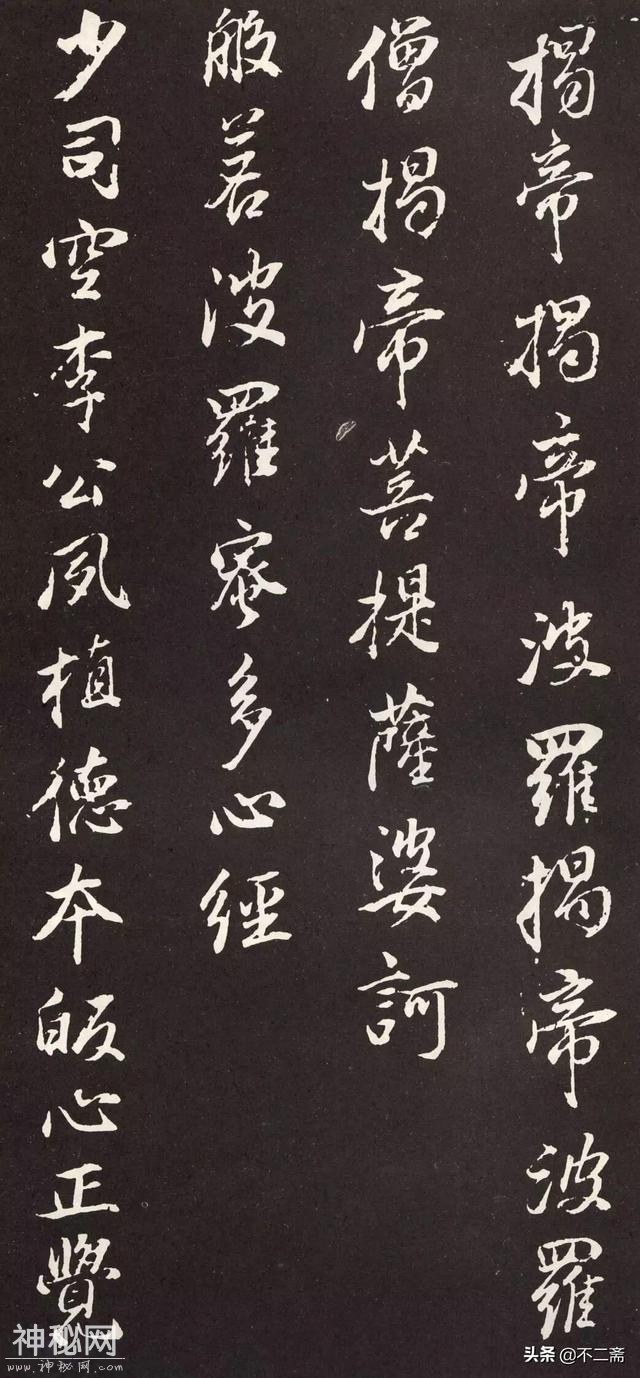 揭帝揭帝波羅揭帝波羅
僧揭帝菩提薩婆訶
般若波羅蜜多心經
少司空李公夙植德本皈心正覺
神秘网
www.神秘网.com
头条 @不二斋